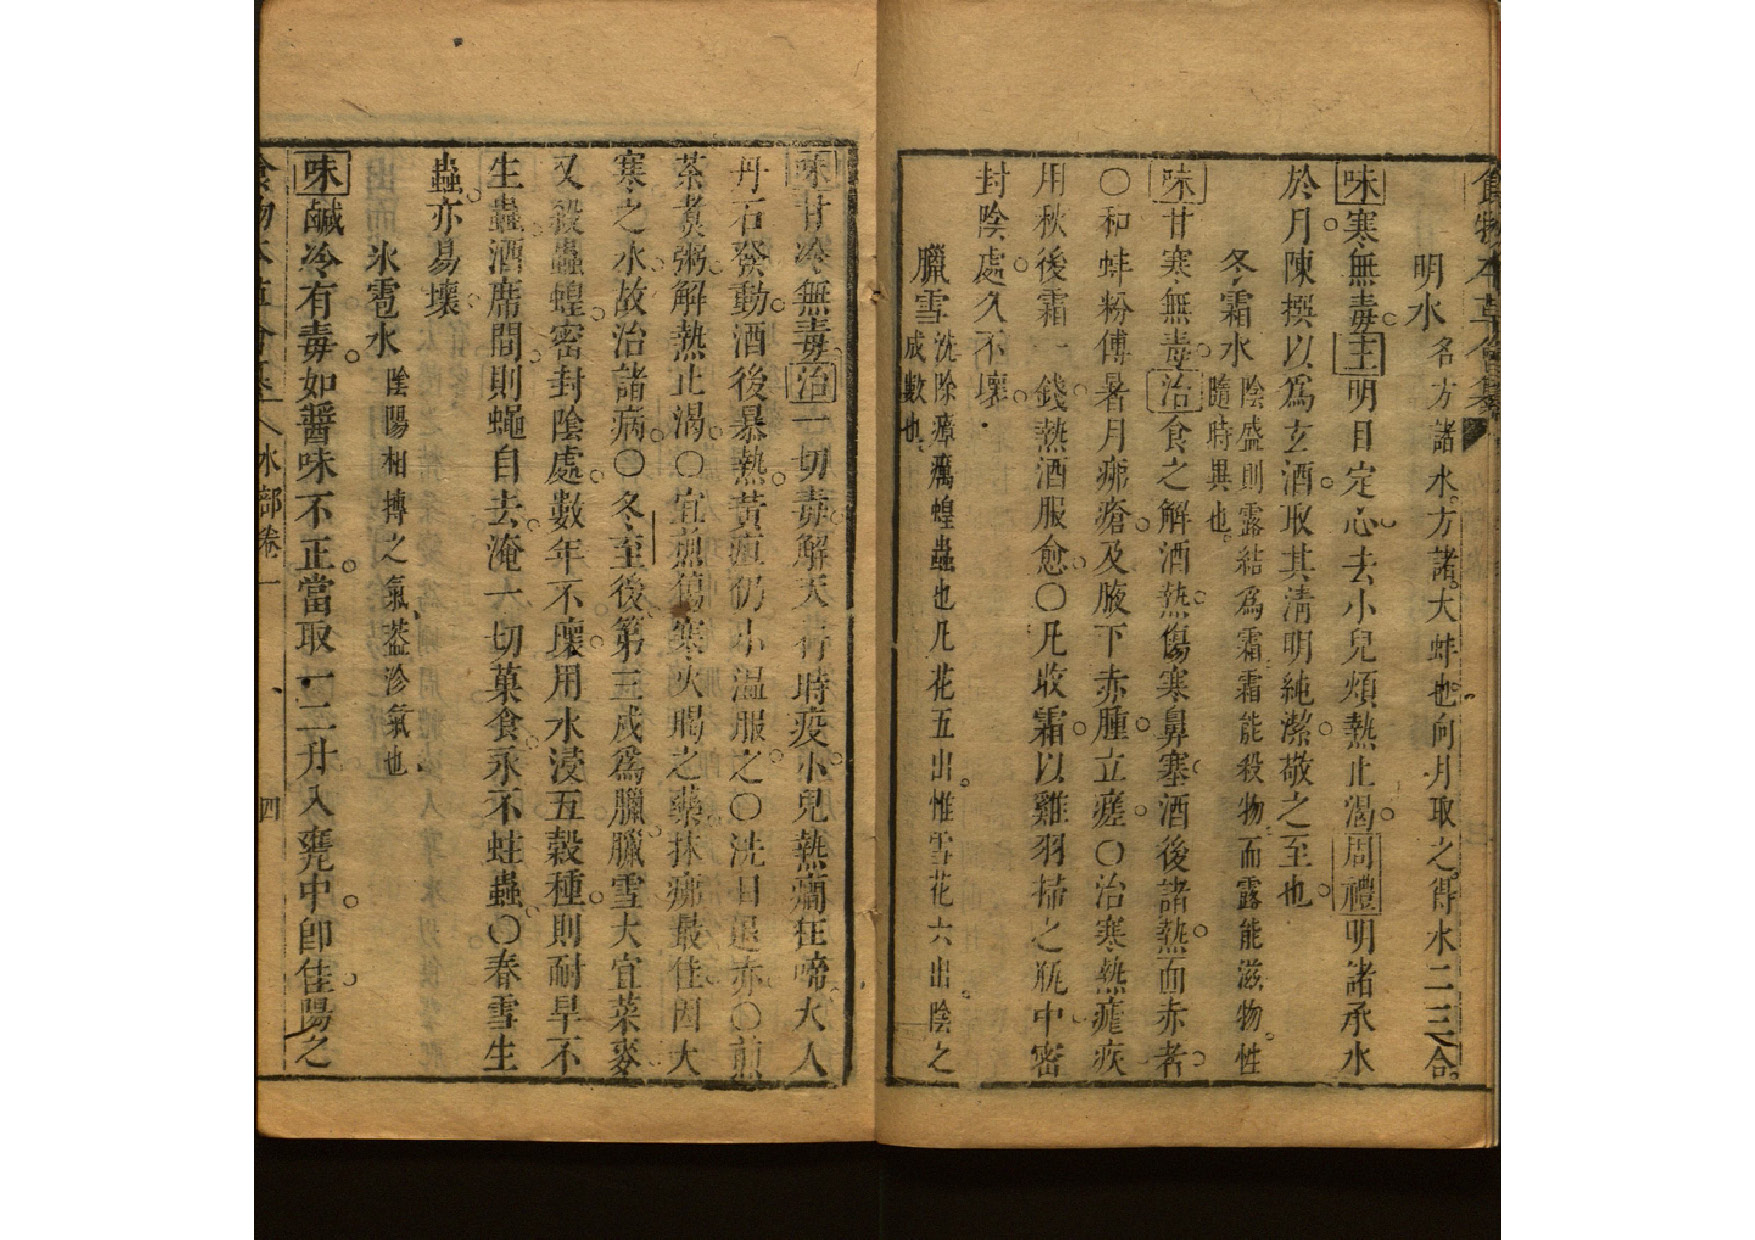 食物本草會纂
明水 名方諸水。方諸。大蚌也向月取之。得水二三合。
味寒無毒。主明目定心。去小兒煩熱止渴。周禮明諸承水
於月。陳撰以爲玄酒。取其清明純潔。敬之至也。
冬霜水 陰盛則露結爲霜。霜能殺物。而露能滋物。性
隨時異也。
味甘寒無毒。治食之解酒熱。傷寒鼻塞。酒後諸熱。面赤者。
○和蚌粉傅暑月疿瘡。及腋下赤腫。立瘥。○治寒熱瘧疾
用秋後霜一錢。熱酒服愈。○凡收霜。以雞羽掃之瓶中。密
封陰處。久不壞。
臘雪 洗除瘴癘蝗蟲也凡花五出。惟雪花六出。陰之
成數也
味甘冷無毒。治一切毒。解天行時疫。小兒熱癇狂啼。大人
丹石發動。酒後暴熱。黃疸仍小溫服之。○洗目退赤○煎
茶煮粥。解熱止渴。○宜煎傷寒火暍之藥。抹疿最佳。因大
寒之水。故治諸病。○冬至後第三戌爲臘。臘雪大宜菜麥
又殺蟲蝗。密封陰處。數年不壞。用水浸五穀種。則耐旱不
生蟲。酒席間。則蠅自去。淹一切菓食。永不蛀蟲。○春雪生
蟲。亦易壞。
氷雹水 陰陽相搏之氣。葢沴氣也
味鹹冷有毒。如醬味不正。當取一二升入甕中。卽佳。陽之
食物本草會纂 水部卷一 四